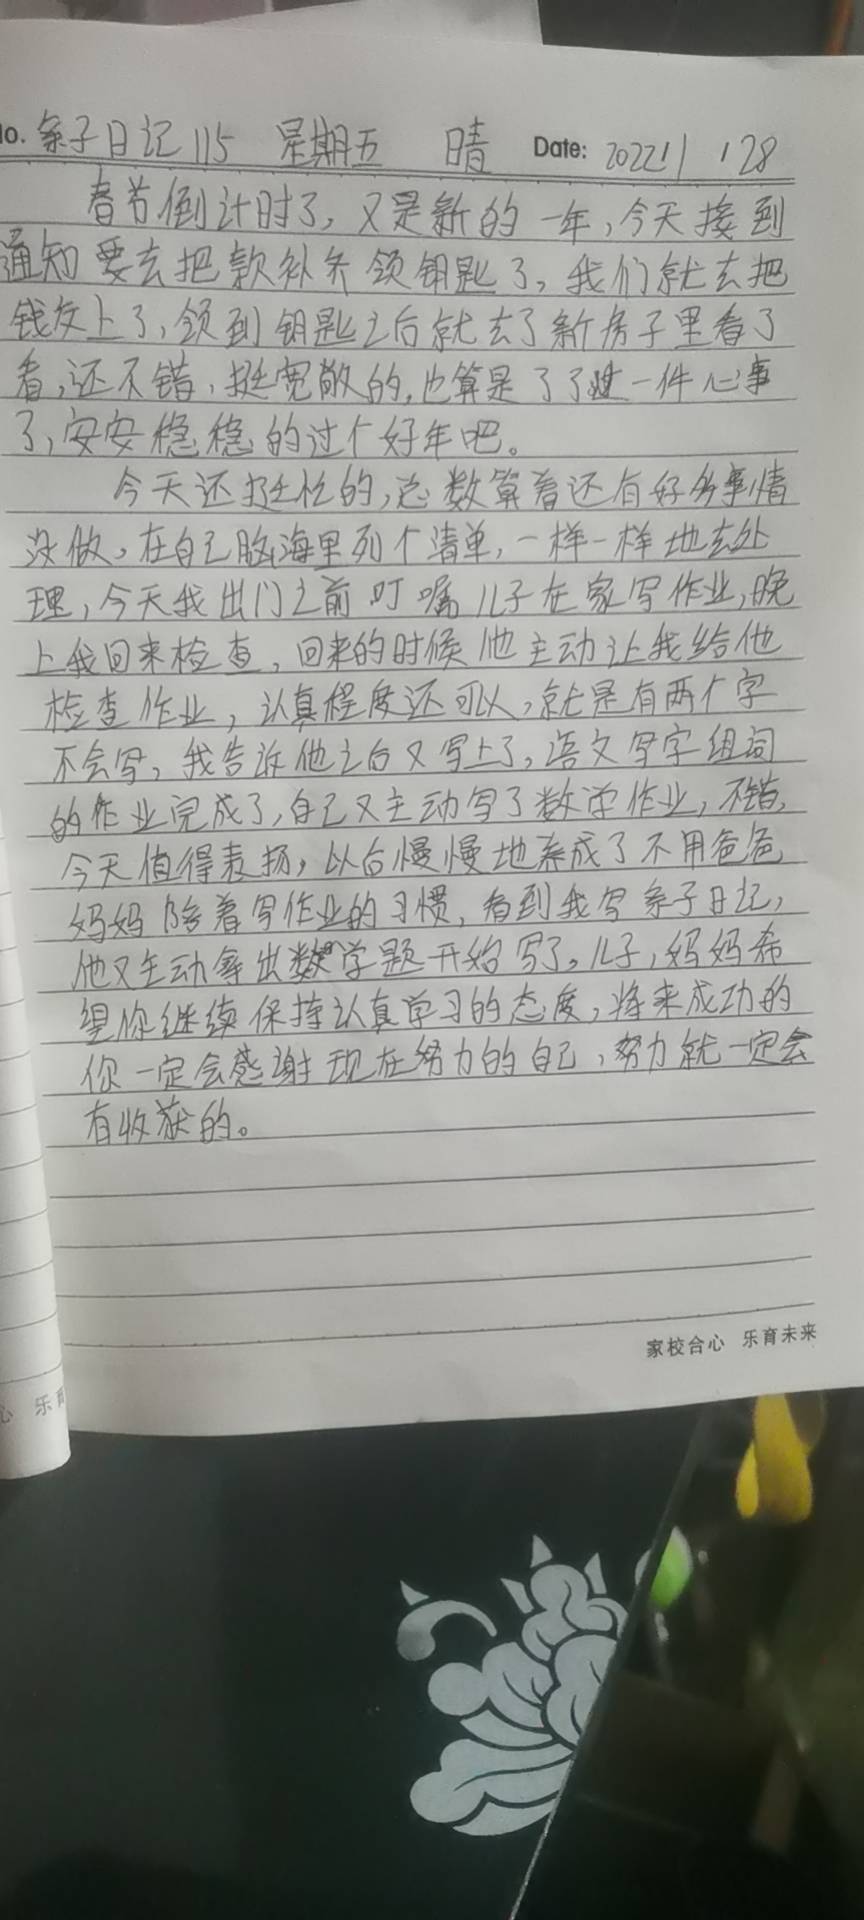 No. 亲子日记115 星期五 晴 Date: 2022 1 28
春节倒计时了,又是新的一年,今天接到
通知要去把款补齐领钥匙了,我们就去把
钱交上了,领到钥匙之后就去了新房子里看了
看,还不错,挺宽敞的,也算是了了一件心事
了,安安稳稳的过个好年吧。
今天还挺忙的,总数算着还有好多事情
没做。在自己脑海里列个清单,一样一样地去处
理,今天我出门之前叮嘱儿子在家写作业,晚
上我回来检查,回来的时候他主动让我给他
检查作业,认真程度还可以,就是有两个字
不会写,我告诉他之后又写上了,语文写字组词
的作业完成了,自己又主动写了数学作业,不错,
今天值得表扬,以后慢慢地养成了不用爸爸
妈妈陪着写作业的习惯,看到我写亲子日记,
他又主动拿出数学题开始写了。儿子,妈妈希
望你继续保持认真学习的态度,将来成功的
你一定会感谢现在努力的自己,努力就一定会
有收获的。
家校合心 乐育未来
心 乐育